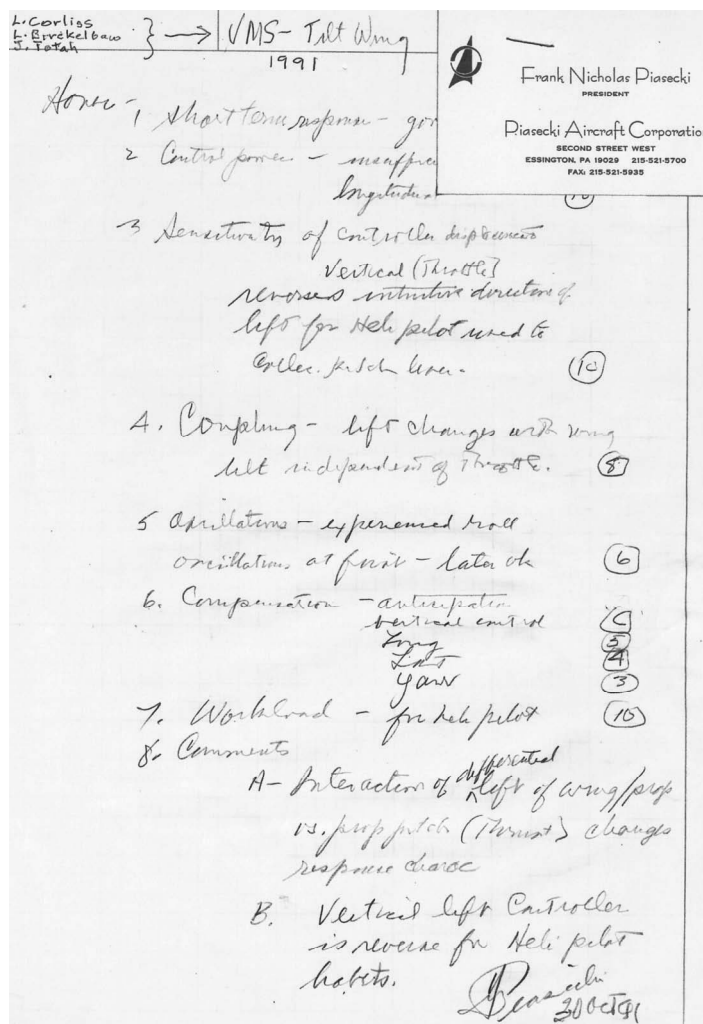 L. Corliss
L. Birckelbaw
J. Totah
VMS - Tilt Wing
1991
Frank Nicholas Piasecki
PRESIDENT
Piasecki Aircraft Corporatio
SECOND STREET WEST
ESSINGTON, PA 19029 215-521-5700
FAX: 215-521-5935
Hover -
1 Short term response - goo
2 Control power - insuffici
longitudinal
10
3 Sensitivity of controller displacements
Vertical (Throttle)
reverses intuitive direction of
lift for Heli pilot used to
Collec. pitch lever.
10
4. Coupling - lift changes with wing
tilt independent of Throttle.
8
5 Oscillations - experienced roll
oscillations at first - later ok
6
6. Compensation - anticipation
vertical control
Long 5
Lat 4
Yaw 3
7. Workload - for heli pilot 10
8. Comments
A - Interaction of differential lift of wing/prop
vs. prop pitch (Thrust) changes
response charac
B. Vertical lift Controller
is reverse for Heli pilot
habits.
Piasecki
30 OCT 91